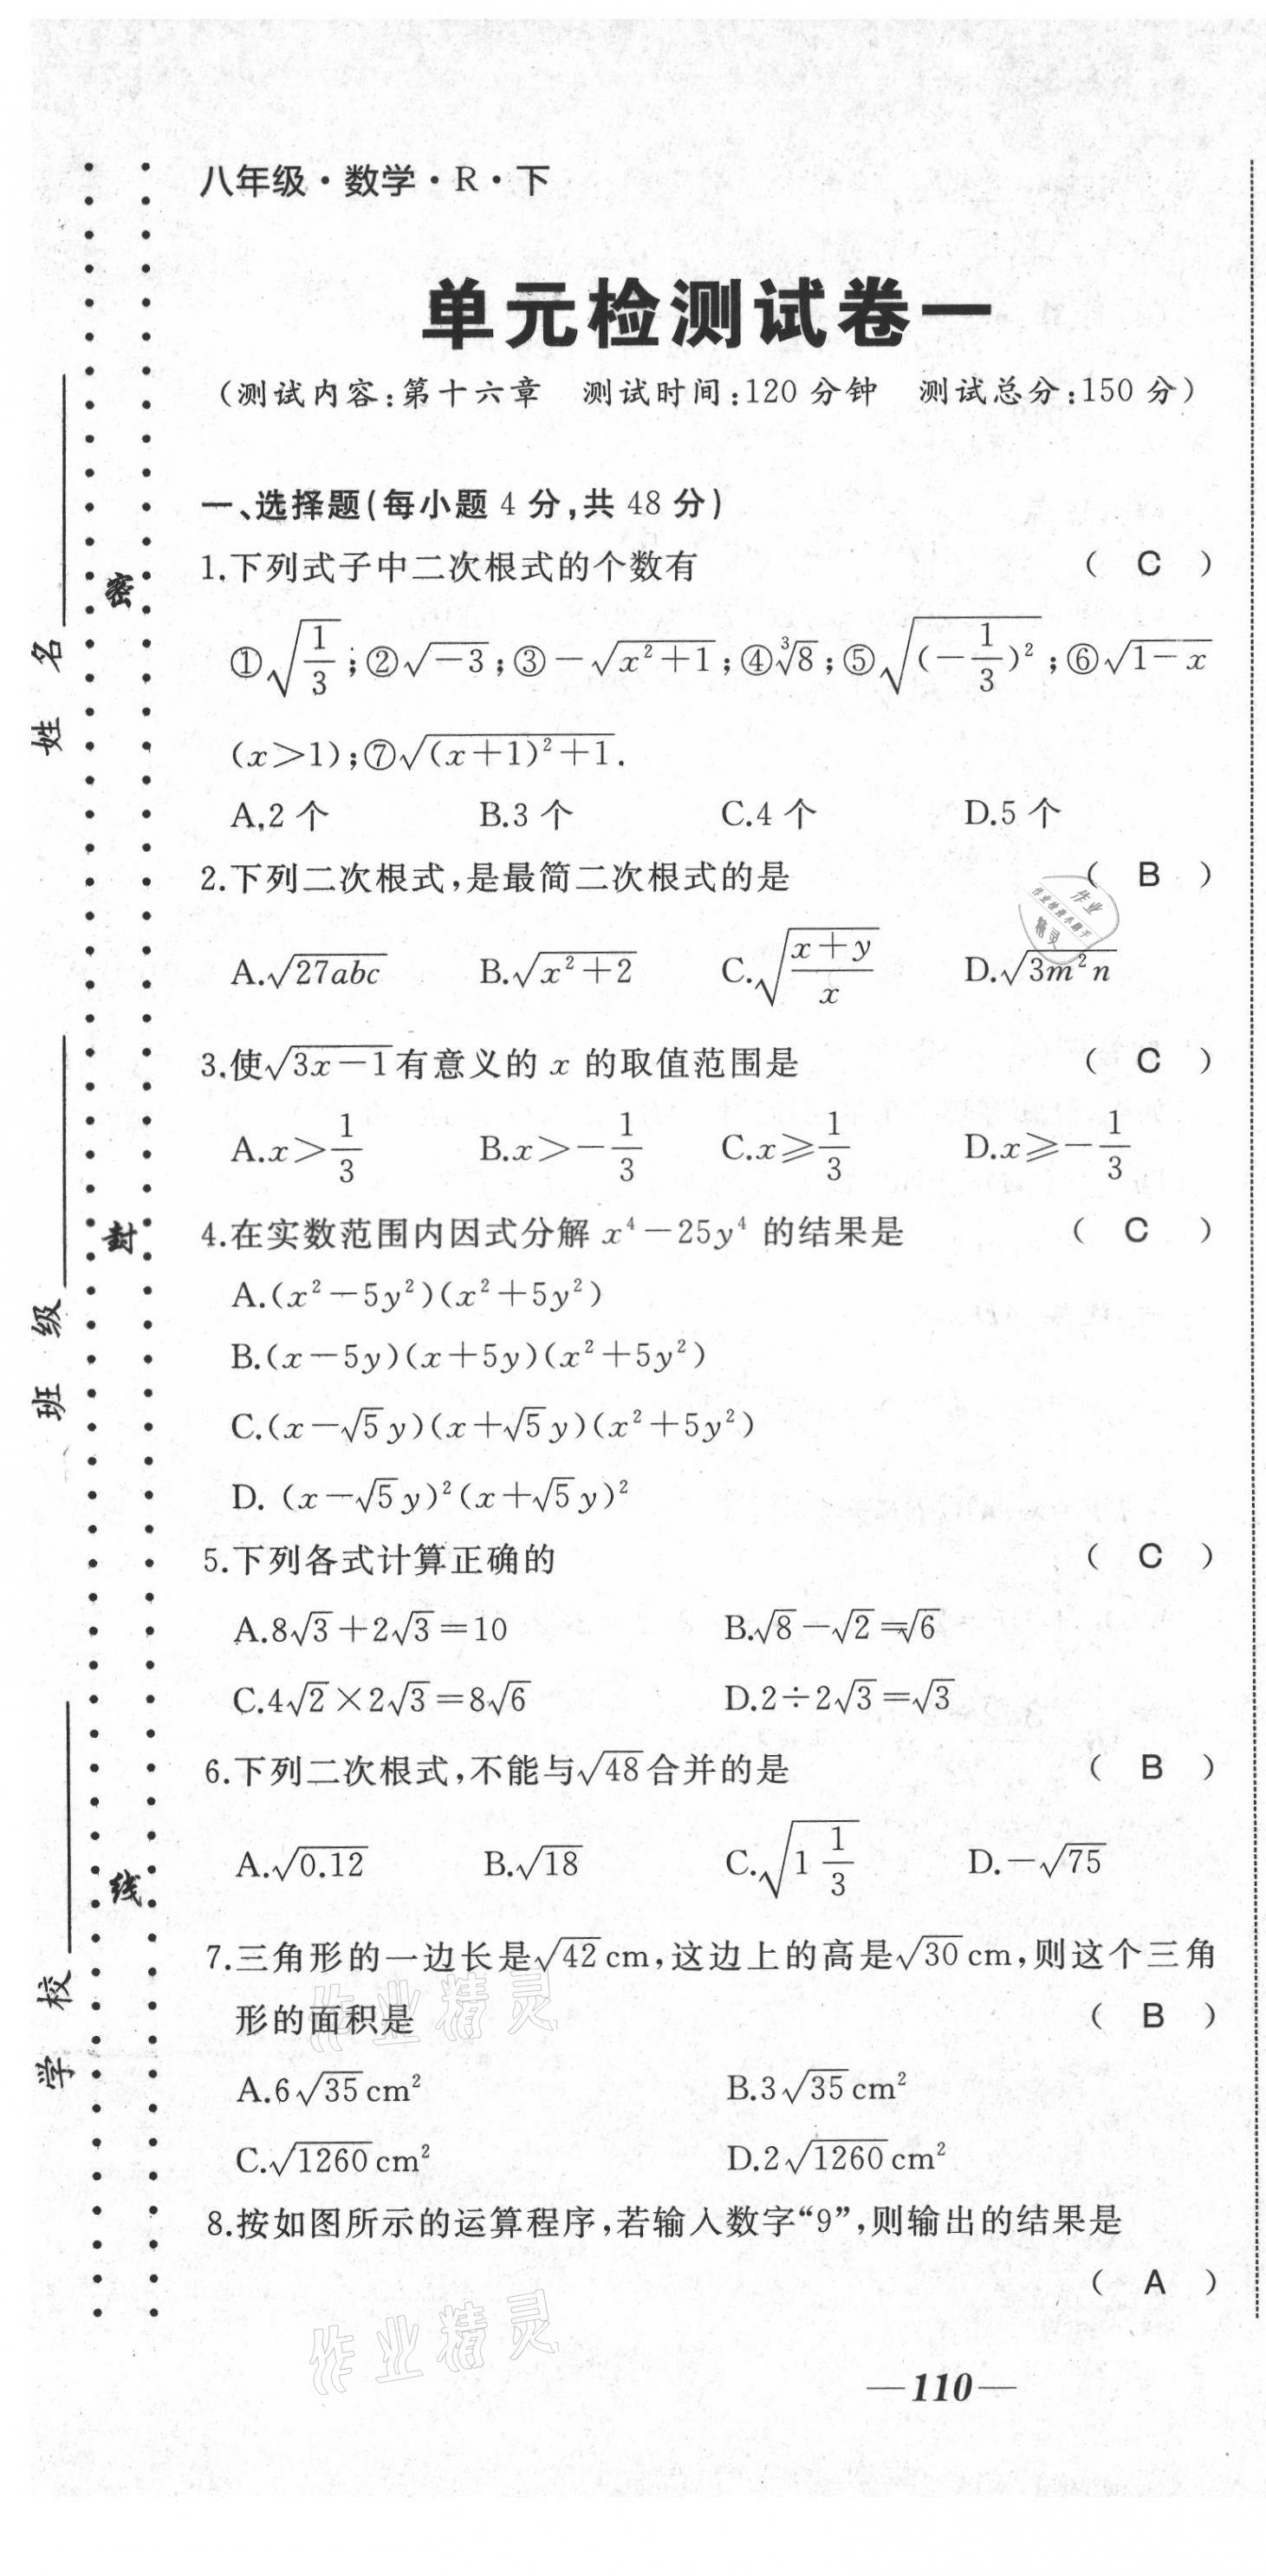 八年级·数学·R·下
单元检测试卷一
(测试内容:第十六章 测试时间:120分钟 测试总分:150分)
一、选择题(每小题4分,共48分)
1.下列式子中二次根式的个数有 ( C )
①√(1/3);②√(-3);③-√(x²+1);④∛8;⑤√((-1/3)²);⑥√(1-x)
(x>1);⑦√((x+1)²+1).
A.2个 B.3个 C.4个 D.5个
2.下列二次根式,是最简二次根式的是 ( B )
作业
作业检查小助手
精灵
A.√(27abc) B.√(x²+2) C.√((x+y)/x) D.√(3m²n)
3.使√(3x-1)有意义的 x 的取值范围是 ( C )
A.x>1/3 B.x>-1/3 C.x≥1/3 D.x≥-1/3
4.在实数范围内因式分解 x⁴-25y⁴ 的结果是 ( C )
A.(x²-5y²)(x²+5y²)
B.(x-5y)(x+5y)(x²+5y²)
C.(x-√5y)(x+√5y)(x²+5y²)
D.(x-√5y)²(x+√5y)²
5.下列各式计算正确的 ( C )
A.8√3+2√3=10 B.√8-√2=√6
C.4√2×2√3=8√6 D.2÷2√3=√3
6.下列二次根式,不能与√48合并的是 ( B )
A.√0.12 B.√18 C.√(1 1/3) D.-√75
7.三角形的一边长是√42cm,这边上的高是√30cm,则这个三角
形的面积是 ( B )
作业精灵
A.6√35cm² B.3√35cm²
C.√1260cm² D.2√1260cm²
8.按如图所示的运算程序,若输入数字“9”,则输出的结果是
( A )
作业精灵
—110—
姓 名
班 级
学 校
密
封
线